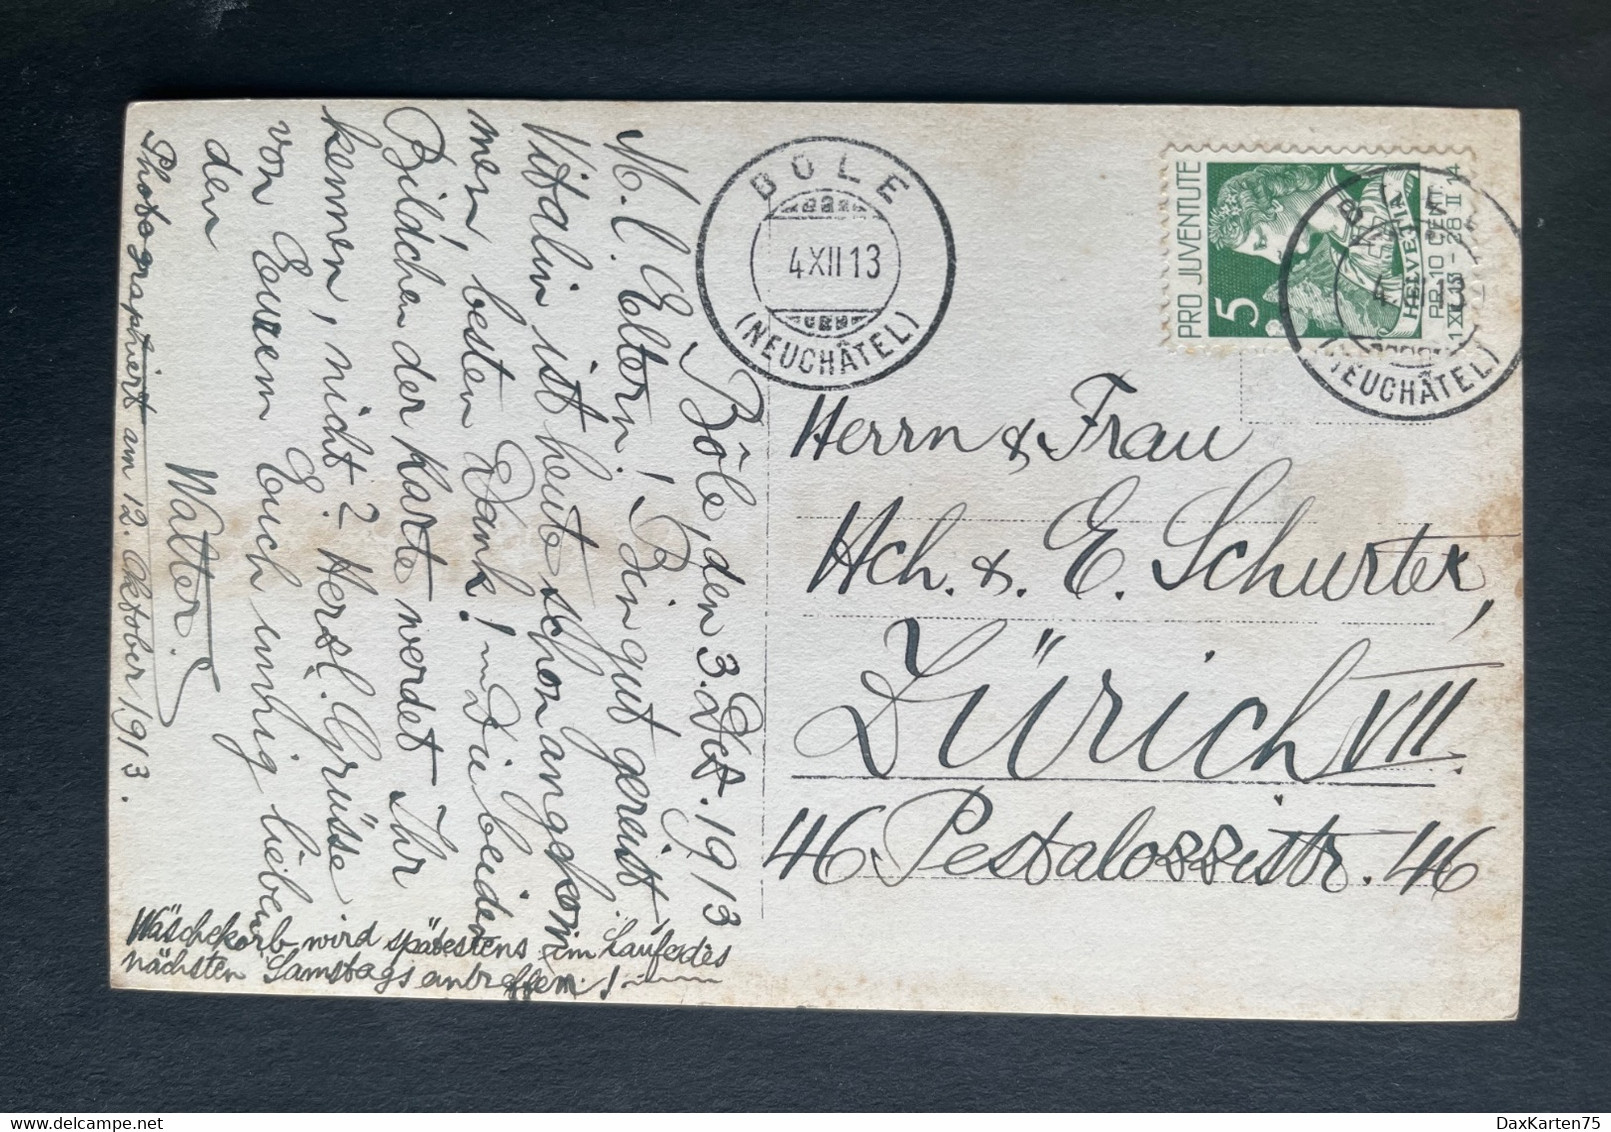 Bôle, den 3. Dez. 1913
M. l. Eltern! Bin gut gereist,
Vitalin ist heute schon angekom
men, besten Dank! Die beiden
Bildchen der Karte werdet Ihr
kennen, nicht? Herzl. Grüsse
von Eurem Euch innig lieben
den
Walter.
Photographiert am 12. Oktober 1913.
Wäschekorb wird spätestens im Laufe des
nächsten Samstags antreffen!
BOLE
4 XII 13
(NEUCHÂTEL)
PRO JUVENTUTE
5
HELVETIA
PR. 10 CENT.
1 XII 13 - 28 II 14
(NEUCHÂTEL)
Herrn & Frau
Hch. & E. Schurter,
Zürich VII
46 Pestalozzistr. 46
DaxKarten75